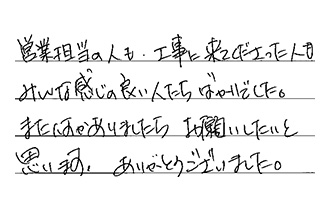 営業担当の人も、工事に来てくださった人も
みんな感じの良い人たちばかりでした。
またなにかありましたら お願いしたいと
思います。ありがとうございました。